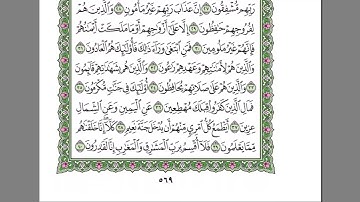 رَبِّهِم مُّشْفِقُونَ ٢٧ إِنَّ عَذَابَ رَبِّهِمْ غَيْرُ مَأْمُونٍ ٢٨ وَالَّذِينَ هُمْ
لِفُرُوجِهِمْ حَافِظُونَ ٢٩ إِلَّا عَلَىٰ أَزْوَاجِهِمْ أَوْ مَا مَلَكَتْ أَيْمَانُهُمْ
فَإِنَّهُمْ غَيْرُ مَلُومِينَ ٣٠ فَمَنِ ابْتَغَىٰ وَرَاءَ ذَٰلِكَ فَأُولَٰئِكَ هُمُ الْعَادُونَ ٣١
وَالَّذِينَ هُمْ لِأَمَانَاتِهِمْ وَعَهْدِهِمْ رَاعُونَ ٣٢ وَالَّذِينَ هُم بِشَهَادَاتِهِمْ قَائِمُونَ ٣٣
وَالَّذِينَ هُمْ عَلَىٰ صَلَاتِهِمْ يُحَافِظُونَ ٣٤ أُولَٰئِكَ فِي جَنَّاتٍ مُّكْرَمُونَ ٣٥
فَمَالِ الَّذِينَ كَفَرُوا قِبَلَكَ مُهْطِعِينَ ٣٦ عَنِ الْيَمِينِ وَعَنِ الشِّمَالِ
عِزِينَ ٣٧ أَيَطْمَعُ كُلُّ امْرِئٍ مِّنْهُمْ أَن يُدْخَلَ جَنَّةَ نَعِيمٍ ٣٨ كَلَّا إِنَّا خَلَقْنَاهُم
مِّمَّا يَعْلَمُونَ ٣٩ فَلَا أُقْسِمُ بِرَبِّ الْمَشَارِقِ وَالْمَغَارِبِ إِنَّا لَقَادِرُونَ ٤٠
٥٦٩